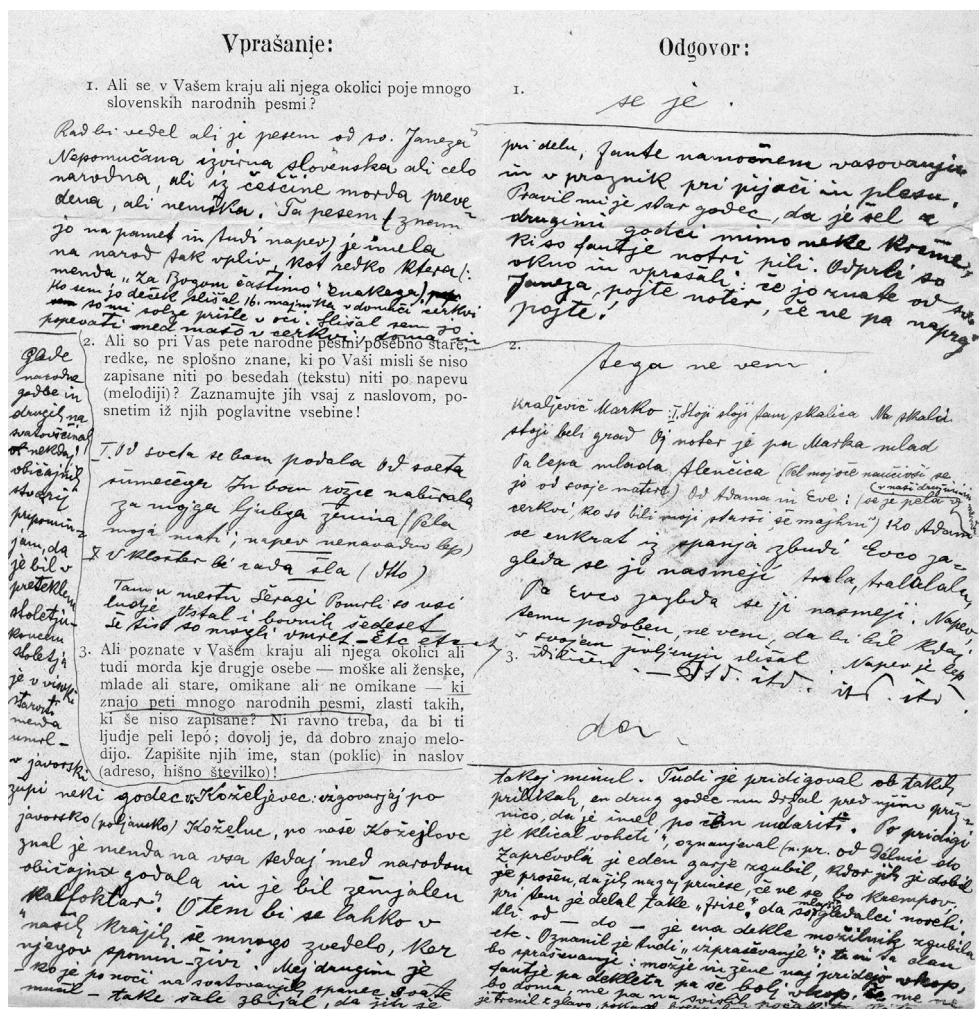 Vprašanje:
1. Ali se v Vašem kraju ali njega okolici poje mnogo
slovenskih narodnih pesmi?
Rad bi vedel ali je pesem od sv. Janeza
Nepomučana izvirna slovenska ali celo
narodna, ali iz češčine morda preve-
dena, ali nemška. Ta pesem (znam
jo na pamet in tudi napev) je imela
na narod tak vpliv, kot redko ktera (:
menda „Za Bogom častimo" enakega),
Ko sem jo deček slišal 16. majnika v domači cerkvi
so mi solze prišle v oči. Slišal sem jo
popevati med mašo v cerkvi, doma in
2. Ali so pri Vas pete narodne pesmi posebno stare,
redke, ne splošno znane, ki po Vaši misli še niso
zapisane niti po besedah (tekstu) niti po napevu
(melodiji)? Zaznamujte jih vsaj z naslovom, po-
snetim iž njih poglavitne vsebine!
I. Od sveta se bom podala Od sveta
šumečega In bom rožce nabirala
za mojga ljubga ženina (Pela
moja mati; napev nenavadno lep)
V klošter bi rada šla (dtto)
Tam v mestu Šeragi Pomrli so vsi
ludje Ostal i bovnih šedeset
Še tis so mogli vmret – Etc etc
3. Ali poznate v Vašem kraju ali njega okolici ali
tudi morda kje drugje osebe — moške ali ženske,
mlade ali stare, omikane ali ne omikane — ki
znajo peti mnogo narodnih pesmi, zlasti takih,
ki še niso zapisane? Ni ravno treba, da bi ti
ljudje peli lepó; dovolj je, da dobro znajo melo-
dijo. Zapišite njih ime, stan (poklic) in naslov
(adreso, hišno številko)!
narodne
godbe in
drugih na
svatovščinah
nekdaj
običajnih
stvarij
pripomin-
jam, da
je bil v
preteklem
stoletju
koncem
stoletja
je v visoki
starosti
menda
umrl –
v javorski
župi neki godec v Koželjevec: izgovarjaj po
javorsko (poljansko) Koželuc, po naše Kožejlovc
znal je menda na vsa sedaj med narodom
običajna godala in je bil zemjalen
O tem bi se lahko v
naših krajih še mnogo zvedelo, ker
njegov spomin živi. Mej drugim je
– ko je ponoči na svatovanjih spanec svate
mučil – take šale zbijal, da jih je
Odgovor:
1.
se je.
pri delu, fante na nočnem vasovanju
in v praznik pri pijači in plesu.
Pravil mi je star godec, da je šel z
drugimi godci mimo neke krčme,
ki so fantje notri pili. Odprli so
okno in vprašali: če jo znate od sv.
Janeza, pojte noter, če ne pa naprej
pojte!
2.
tega ne vem.
Kraljevič Marko: I. Stoji stoji tam skalica Na skalci
stoji beli grad Oj noter je pa Marka mlad
Pa lepa mlada Alenčica (Pel moj oče naučivši se
jo od svoje matere) Od Adama in Eve: (se je pela v
cerkvi, ko so bili moji starši še majhni) Ko Adam
se enkrat iz spanja zbudi Evco za-
gleda se ji nasmeji trala, tralalala,
Pa Evco zagleda se ji nasmeji. Napev
temu podoben, ne vem, da bi bil kdaj
v svojem življenju slišal. Napev je lep
– Itd. itd. itd. itd.
3.
da.
takoj minul. Tudi je pridigoval ob takih
prilikah, en drug godec mu držal pred njim priž-
nico, da je imel po čem udariti. Po pridigi
je klical „oznanjeval (n. pr. od
je eden garje zgubil, kdor jih je dobil
je prošen, da jih nazaj prinese, če ne se bo
pri tem je delal take „friže", da so gledalci noreli.
Ali od – do – je ena dekle možilnik zgubila
etc. Oznanil je tudi „izpraševanje": ta in ta dan
bo spraševanje: možje in žene naj pridejo vkop,
fantje pa dekleta pa še bolj vkop,